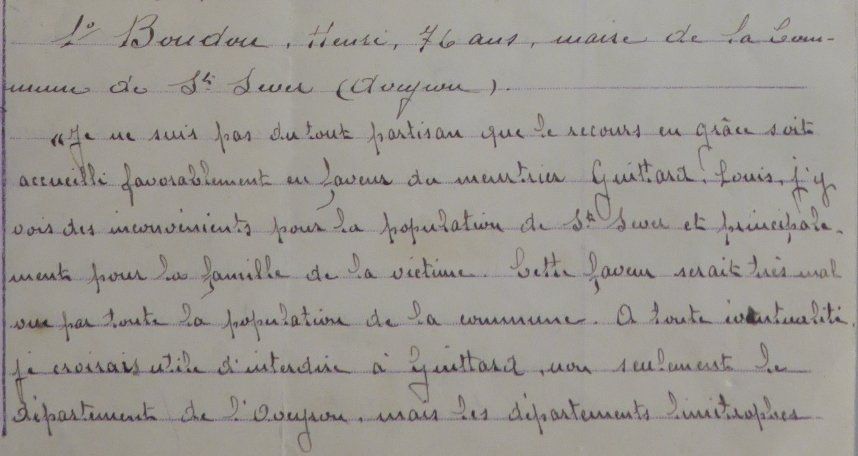 1° Boudou, Henri, 76 ans, maire de la Com-
mune de St Sever (Aveyron).
"Je ne suis pas du tout partisan que le recours en grâce soit
accueilli favorablement en faveur du meurtrier Guittard, Louis, j'y
vois des inconvénients pour la population de St Sever et principale-
ment pour la famille de la victime. Cette faveur serait très mal
vue par toute la population de la commune. A toute éventualité,
je croirais utile d'interdire à Guittard, non seulement le
département de l'Aveyron, mais les départements limitrophes